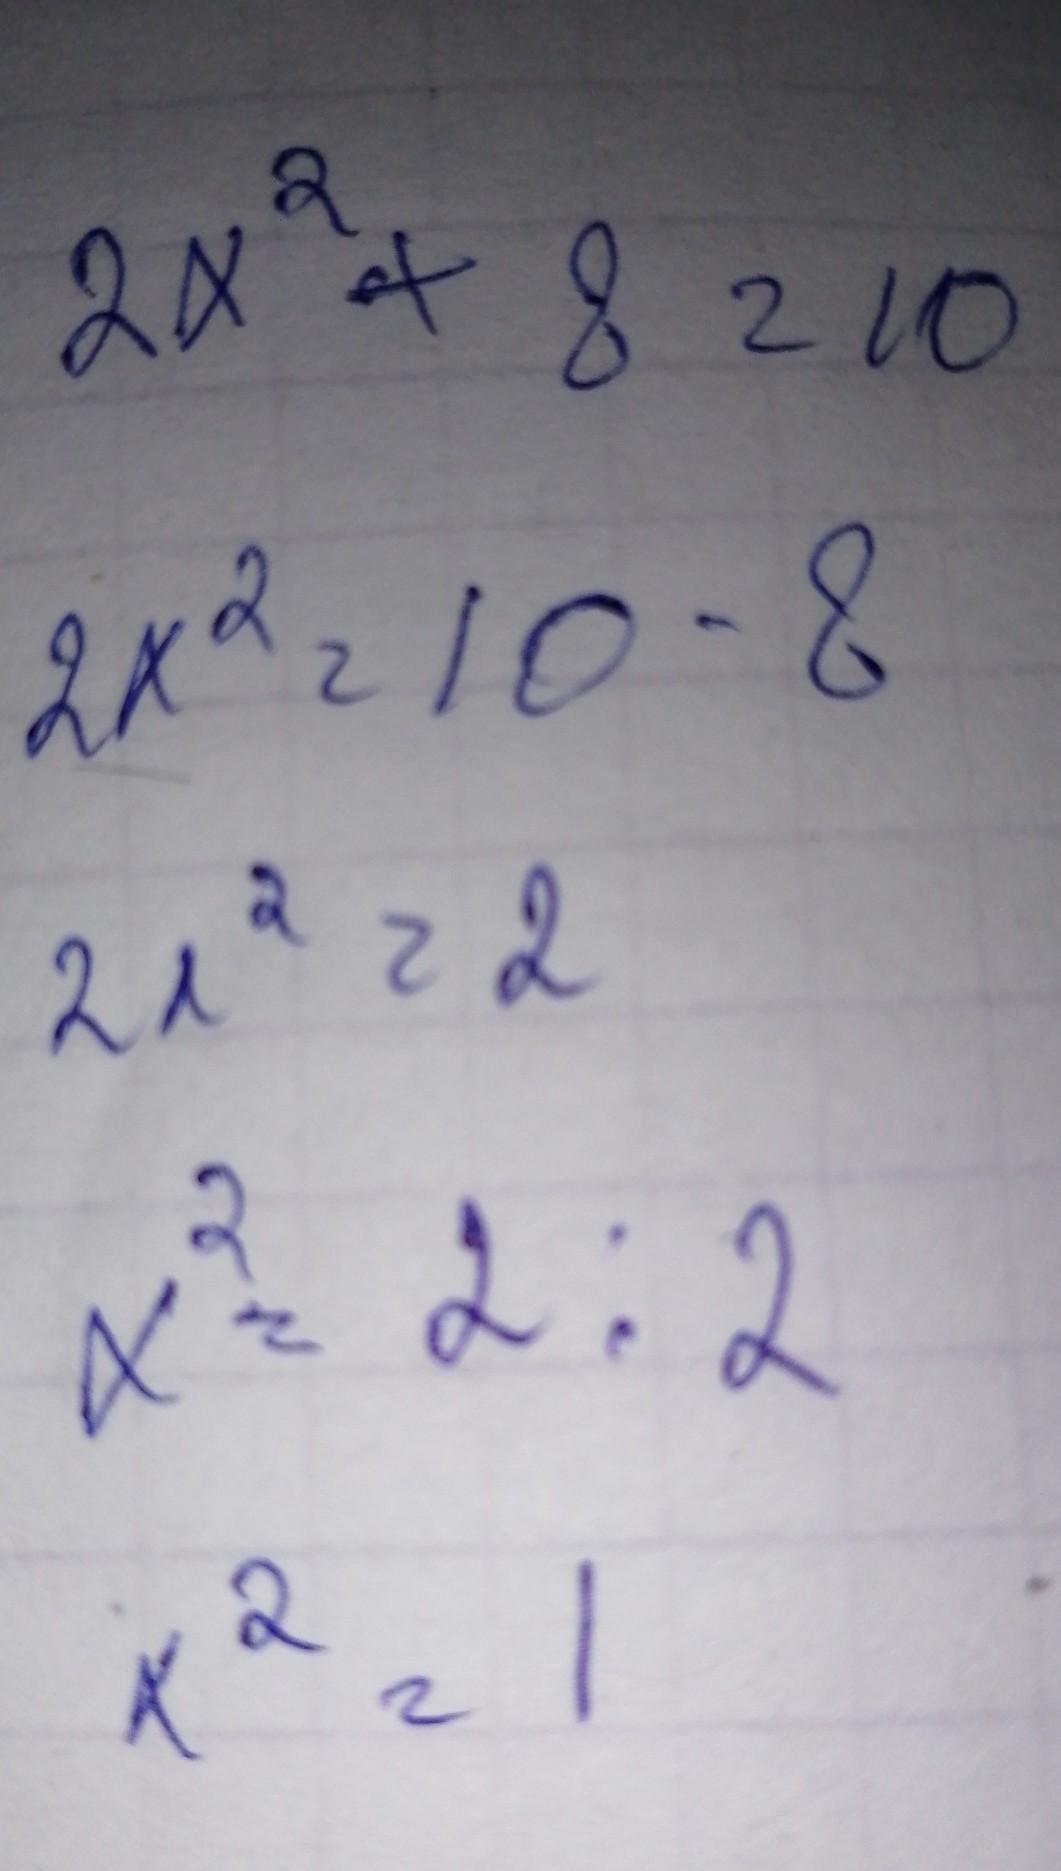 2x² + 8 = 10
2x² = 10 - 8
2x² = 2
x² = 2 : 2
x² = 1